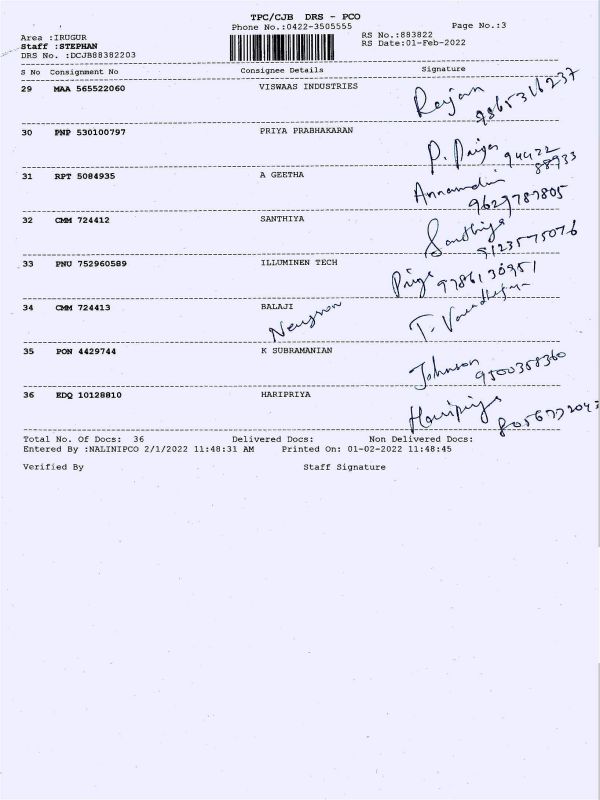 TPC/CJB DRS - PCO
Phone No.:0422-3505555 Page No.:3
Area :IRUGUR RS No.:883822
Staff :STEPHAN RS Date:01-Feb-2022
DRS No. :DCJB88382203
S No Consignment No Consignee Details Signature
29 MAA 565522060 VISWAAS INDUSTRIES
Rajan
9865316237
30 PNP 530100797 PRIYA PRABHAKARAN
P. Priya 94422
88933
31 RPT 5084935 A GEETHA
9629787805
32 CMM 724412 SANTHIYA
Santhiya
9123575076
33 PNU 752960589 ILLUMINEN TECH
Priya 9786136951
34 CMM 724413 BALAJI
T.
35 PON 4429744 K SUBRAMANIAN
Johnson
9500358360
36 EDQ 10128810 HARIPRIYA
Haripriya
Total No. Of Docs: 36 Delivered Docs: Non Delivered Docs:
Entered By :NALINIPCO 2/1/2022 11:48:31 AM Printed On: 01-02-2022 11:48:45
Verified By Staff Signature